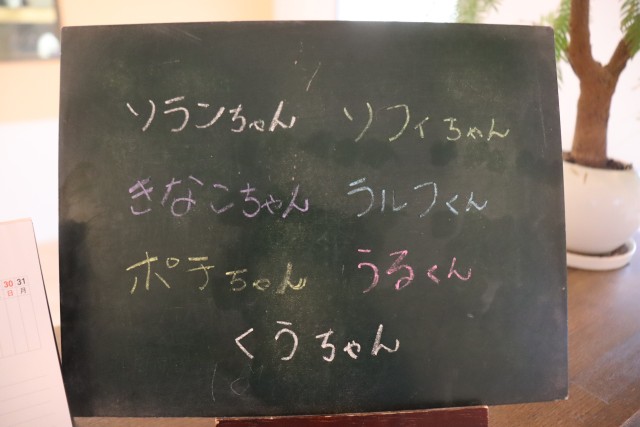 ソランちゃん ソフィちゃん
きなこちゃん ラルフくん
ポテちゃん うるくん
くうちゃん
30 31
日 月